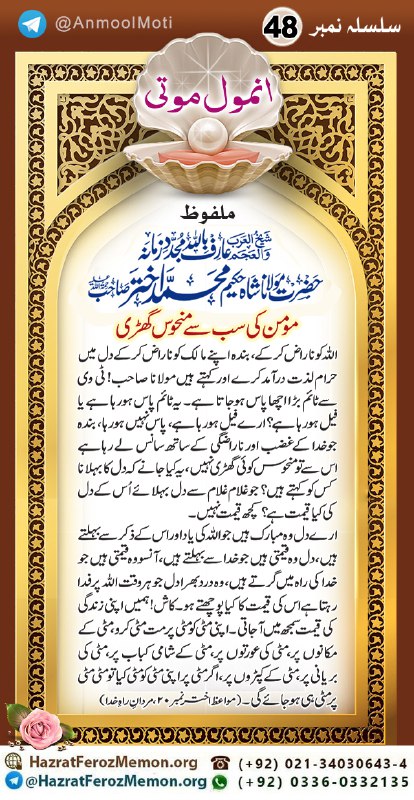 @AnmoolMoti
سلسلہ نمبر 48
انمول موتی
ملفوظ
شیخ العرب والعجم عارف باللہ مجدد زمانہ
حضرت مولانا شاہ حکیم محمد اختر صاحب
مؤمن کی سب سے منحوس گھڑی
اللہ کو ناراض کر کے، بندہ اپنے مالک کو ناراض کر کے دل میں
حرام لذت درآمد کرے اور کہتے ہیں مولانا صاحب! ٹی وی
سے ٹائم بڑا اچھا پاس ہو جاتا ہے۔ یہ ٹائم پاس ہو رہا ہے یا
فیل ہو رہا ہے؟ ارے فیل ہو رہا ہے، پاس نہیں ہو رہا، بندہ
جو خدا کے غضب اور ناراضگی کے ساتھ سانس لے رہا ہے
اس سے تو منحوس کوئی گھڑی نہیں، یہ کیا جانے کہ دل کا بہلانا
کس کو کہتے ہیں؟ جو غلام غلام سے دل بہلائے اُس کے دل
کی کیا قیمت ہے؟ کچھ قیمت نہیں۔
ارے دل وہ مبارک ہیں جو اللہ کی یاد اور اس کے ذکر سے بہلتے
ہیں، دل وہ قیمتی ہیں جو خدا سے بہلتے ہیں، آنسو وہ قیمتی ہیں جو
خدا کی راہ میں گرتے ہیں، وہ درد بھرا دل جو ہر وقت اللہ پر فدا
رہتا ہے اس کی قیمت کا کیا پوچھتے ہو۔ کاش! ہمیں اپنی زندگی
کی قیمت سمجھ میں آ جاتی۔ اپنی مٹی کو مٹی پر مت مٹی کرو، مٹی کے
مکانوں پر، مٹی کی عورتوں پر، مٹی کے شامی کباب پر، مٹی کی
بریانی پر، مٹی کے کپڑوں پر، اگر مٹی پر اپنی مٹی کو مٹی کیا تو مٹی مٹی
پر مٹی ہی ہو جائے گی۔ (مواعظ اختر نمبر ۲۰، مردانِ راہِ خدا)
HazratFerozMemon.org (+92) 021-34030643-4
@HazratFerozMemon.org (+92) 0336-0332135